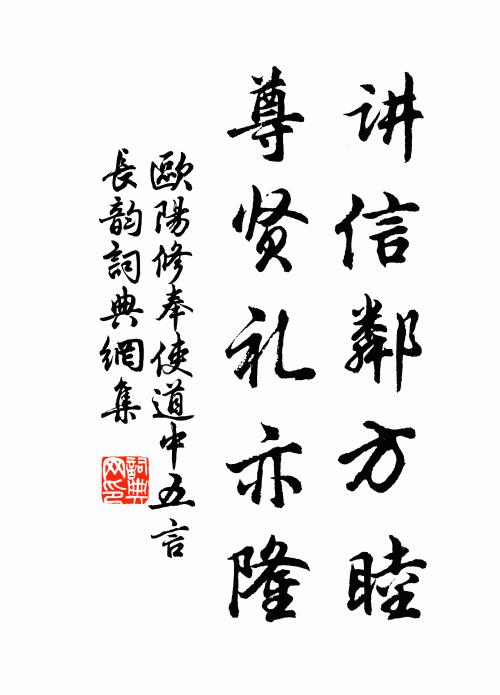 讲信鄰方睦
尊贤礼亦隆
歐陽修奉使道中五言
長韵詞典網集
詞典
网印